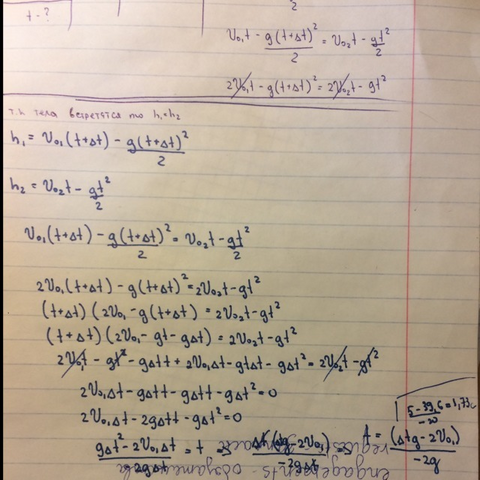 t - ?
2
U₀₁t - g(t+Δt)²/2 = U₀₂t - gt²/2
2U₀₁t - g(t+Δt)² = 2U₀₂t - gt²
т.к тела встретятся то h₁=h₂
h₁ = U₀₁(t+Δt) - g(t+Δt)²/2
h₂ = U₀₂t - gt²/2
U₀₁(t+Δt) - g(t+Δt)²/2 = U₀₂t - gt²/2
2U₀₁(t+Δt) - g(t+Δt)² = 2U₀₂t - gt²
(t+Δt)(2U₀₁ - g(t+Δt) = 2U₀₂t - gt²
(t+Δt)(2U₀₁ - gt - gΔt) = 2U₀₂t - gt²
2U₀₁t - gt² - gΔtt + 2U₀₁Δt - gtΔt - gΔt² = 2U₀₂t - gt²
2U₀₁Δt - gΔtt - gΔtt - gΔt² = 0
2U₀₁Δt - 2gΔtt - gΔt² = 0
gΔt² - 2U₀₁Δt/-2gΔt = t
t = (Δtg - 2U₀₁)/-2g